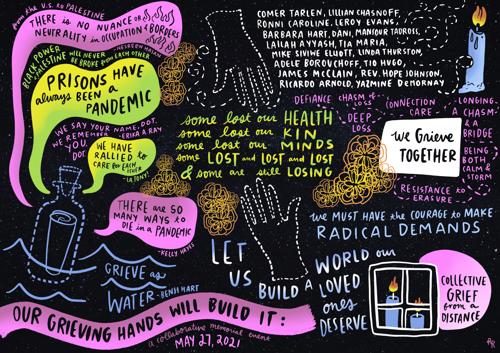 from the U.S. to PALESTINE
THERE IS NO NUANCE OR
NEUTRALITY in OCCUPATION & BORDERS
-LEGREEM HARAM
BLACK POWER
& PALESTINE WILL NEVER
BE BROKEN from EACH OTHER
PRISONS HAVE
always BEEN a
PANDEMIC
WE SAY YOUR NAME, DOT.
WE REMEMBER
YOU,
DOT
-ERIKA A RAY
WE HAVE
RALLIED to
CARE for EACH
OTHER
THERE are SO
MANY WAYS to
DIE in a PANDEMIC
-KELLY HAYES
GRIEVE as
WATER -BENJI HART
COMER TARLEN, LILLIAN CHASNOFF,
RONNI CAROLINE, LEROY EVANS,
BARBARA HART, DANI, MANSOUR TADROSS,
LAILAH AYYASH, TIA MARIA,
MIKE SIVINE ELLIOTT, LINDA THURSTON,
ADELE BOROUCHOFF, TIO HUGO,
JAMES McCLAIN, REV. HOPE JOHNSON,
RICARDO ARNOLD, YAZMINE DEMORNAY
some lost our HEALTH
some lost our KIN
some lost our MINDS
some LOST and LOST and LOST
& some are still LOSING
DEFIANCE
CHASM of
LOSS
DEEP
LOSS
CONNECTION
CARE
LONGING
A CHASM
& A
BRIDGE
BEING
BOTH
CALM &
STORM
we GRIEVE
TOGETHER
RESISTANCE to
ERASURE
WE MUST HAVE the COURAGE to MAKE
RADICAL DEMANDS
LET
US
BUILD A
WORLD our
LOVED
ones
DESERVE
COLLECTIVE
GRIEF
from a
DISTANCE
OUR GRIEVING HANDS WILL BUILD IT:
a collaborative memorial event
MAY 27, 2021